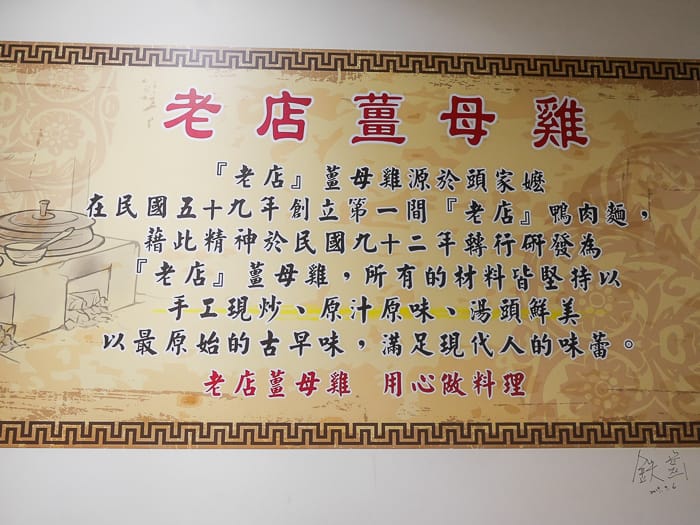 老店薑母雞
『老店』薑母雞源於頭家嬤
在民國五十九年創立第一間『老店』鴨肉麵，
藉此精神於民國九十二年轉行研發為
『老店』薑母雞，所有的材料皆堅持以
手工現炒、原汁原味、湯頭鮮美
以最原始的古早味，滿足現代人的味蕾。
老店薑母雞 用心做料理